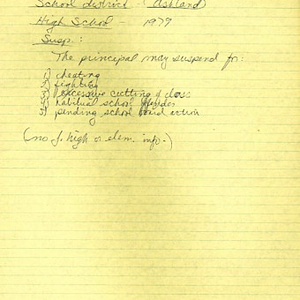 School district - Ashland
High School - 1977
Susp.:
The principal may suspend for:
1) cheating
2) fighting
3) excessive cutting of class
4) habitual school offender
5) pending school board action
(no j. high or elem. info.)